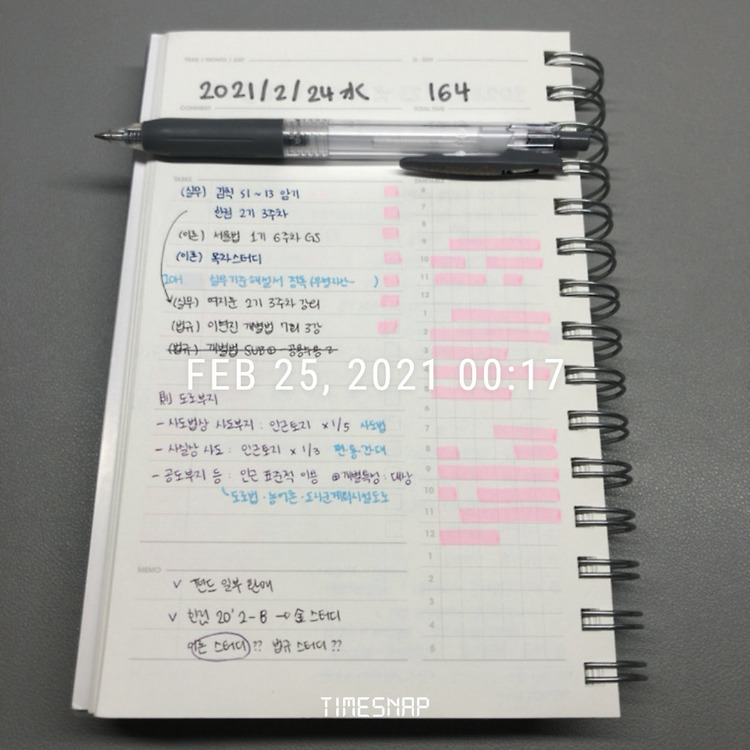 YEAR / MONTH / DAY D-DAY
2021/2/24 水 164
COMMENT TOTAL TIME
TASKS
(실무) 감칙 51~13 암기
한림 2기 3주차
(이론) 서용범 1기 6주차 GS
(이론) 목차스터디
20H 실무기준해설서 정독 (부별자산 )
(실무) 여지훈 2기 3주차 강의
(법규) 이현진 개별법 7회 3강
(법규) 개별법 SUB② 공용수용 2
FEB 25, 2021 00:17
則 도로부지
- 사도법상 사도부지 : 인근토지 ×1/5 사도법
- 사실상 사도 : 인근토지 × 1/3 편·용·간·대
- 공도부지 등 : 인근 표준적 이용 ⊕개별특성 : 대상
도로법·농어촌·도시군계획시설도로
6
7
8
9
10
11
12
1
2
3
6
7
8
9
10
11
12
1
2
3
4
5
MEMO
v 펀드 일부 환매
v 한림 20' 2-B → 金 스터디
이론 스터디?? 법규 스터디??
TIMESNAP